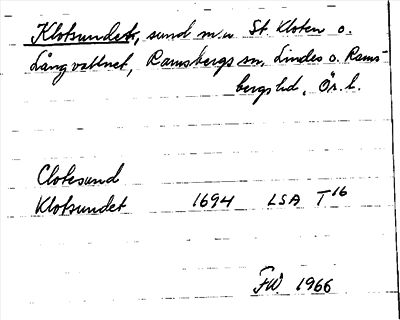 Klotsundet, sund m.u St. Kloten o.
Långvattnet, Ramsbergs sn, Lindes o. Rams-
bergs hd, Ör. l.
Clotesund
Klotsundet 1694 LSA T16
FW. 1966